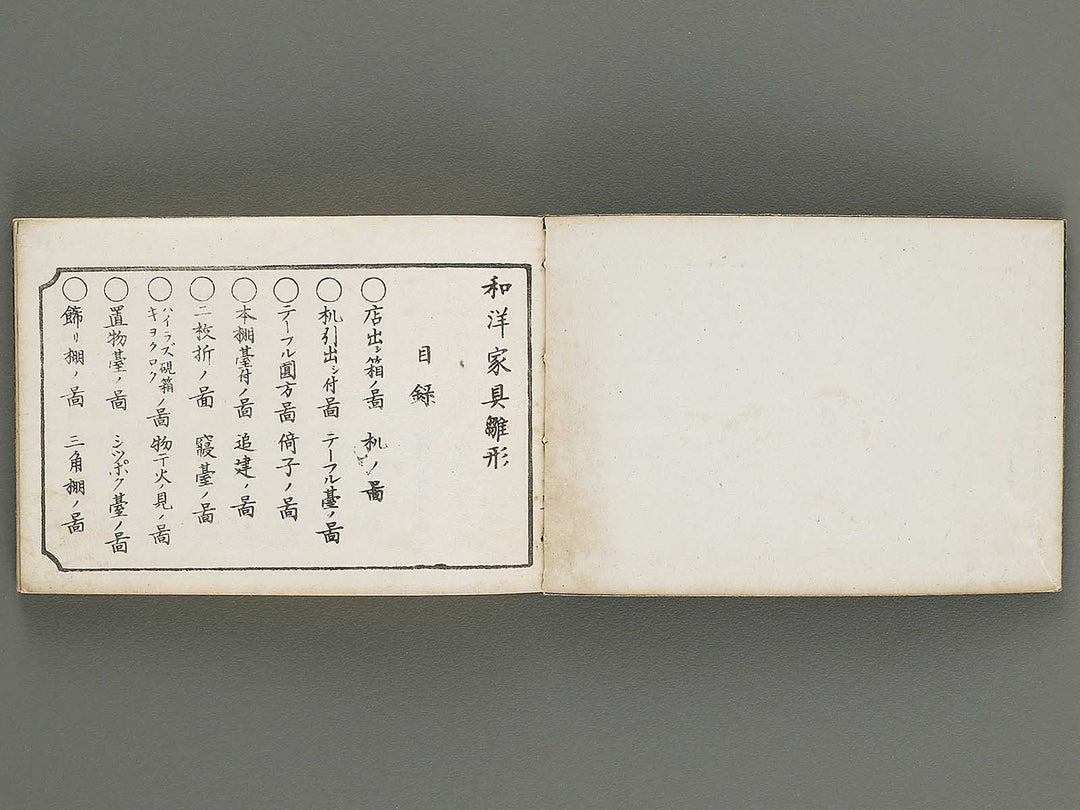 和洋家具雛形
目録
○店出シ箱ノ啚 机ノ啚
○机引出シ付啚 テーフル臺ノ啚
○テーフル圓方啚 倚子ノ啚
○本棚臺付ノ啚 追建ノ啚
○二枚折ノ啚 寢臺ノ啚
○ハイラズ硯箱ノ啚 物干火ノ見ノ啚
キヨクロク
○置物臺ノ啚 シツポク臺ノ啚
○飾リ棚ノ啚 三角棚ノ啚